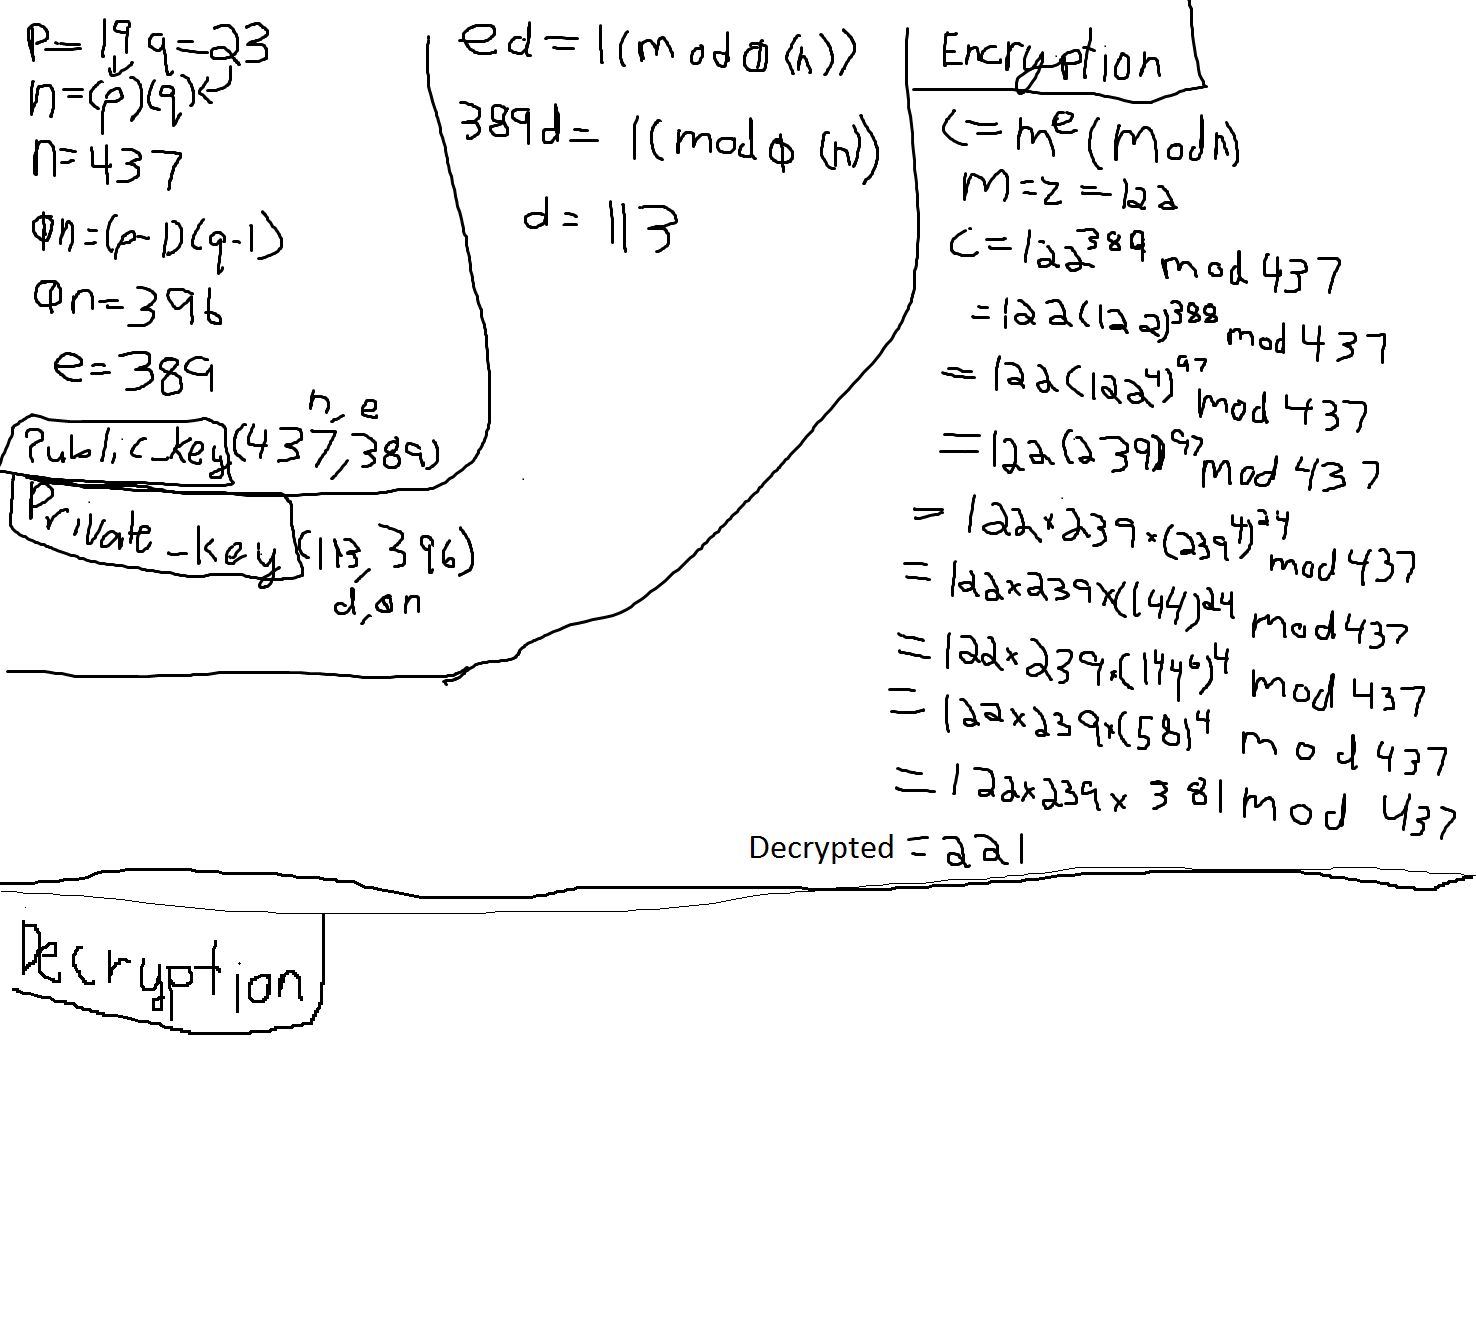 P= 19 q=23
n=(p)(q)
n=437
Φn=(p-1)(q-1)
Φn=396
e=389
n, e
Public_key(437,389)
Private_key(113,396)
d,Φn
ed=1(modΦ(n))
389d=1(modΦ(n))
d=113
Encryption
C=m^e(Modn)
M=z=122
C=122^389 mod 437
=122(122)^388 mod 437
=122(122^4)^97 mod 437
=122(239)^97 mod 437
=122×239×(239^4)^24 mod 437
=122×239×(144)^24 mod 437
=122×239×(144^6)^4 mod 437
=122×239×(58)^4 mod 437
=122×239×381 mod 437
Decrypted =221
Decryption